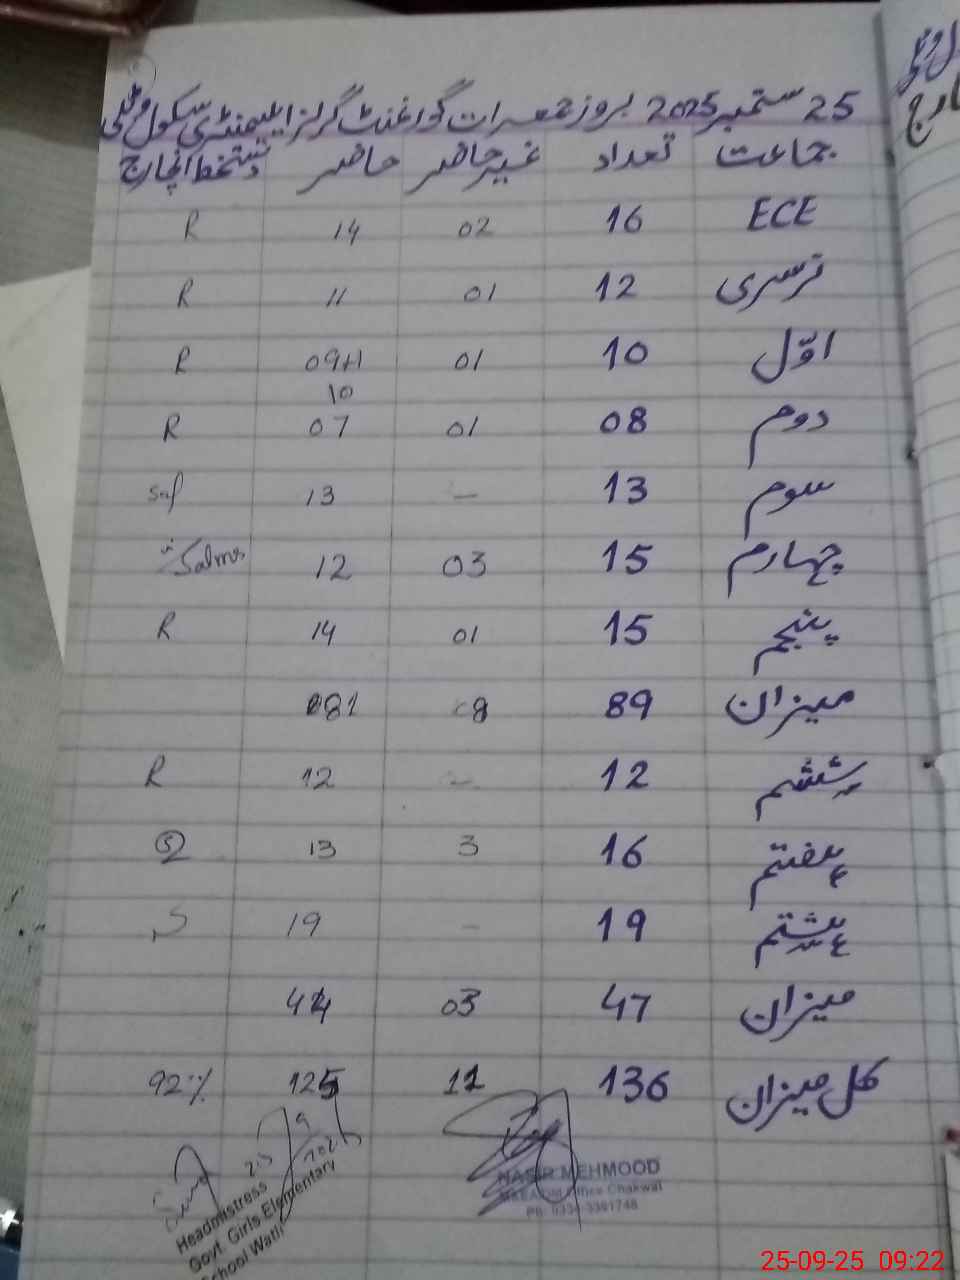 25 ستمبر 2025 بروز جمعرات گورنمنٹ گرلز ایلیمنٹری سکول وٹلی
جماعت تعداد غیر حاضر حاضر دستخط انچارج
ECE 16 02 14 R
نرسری 12 01 11 R
اوّل 10 01 09+1 R
10
دوم 08 01 07 R
سوم 13 – 13 Saf
چہارم 15 03 12 Salma
پنجم 15 01 14 R
میزان 89 8 81
ششم 12 – 12 R
ہفتم 16 3 13
ہشتم 19 – 19
میزان 47 03 44
کل میزان 136 11 125 92٪
25/9/2025
Headmistress
Govt. Girls Elementary
School Watli
NASIR MEHMOOD
Office Chakwal
25-09-25 09:22